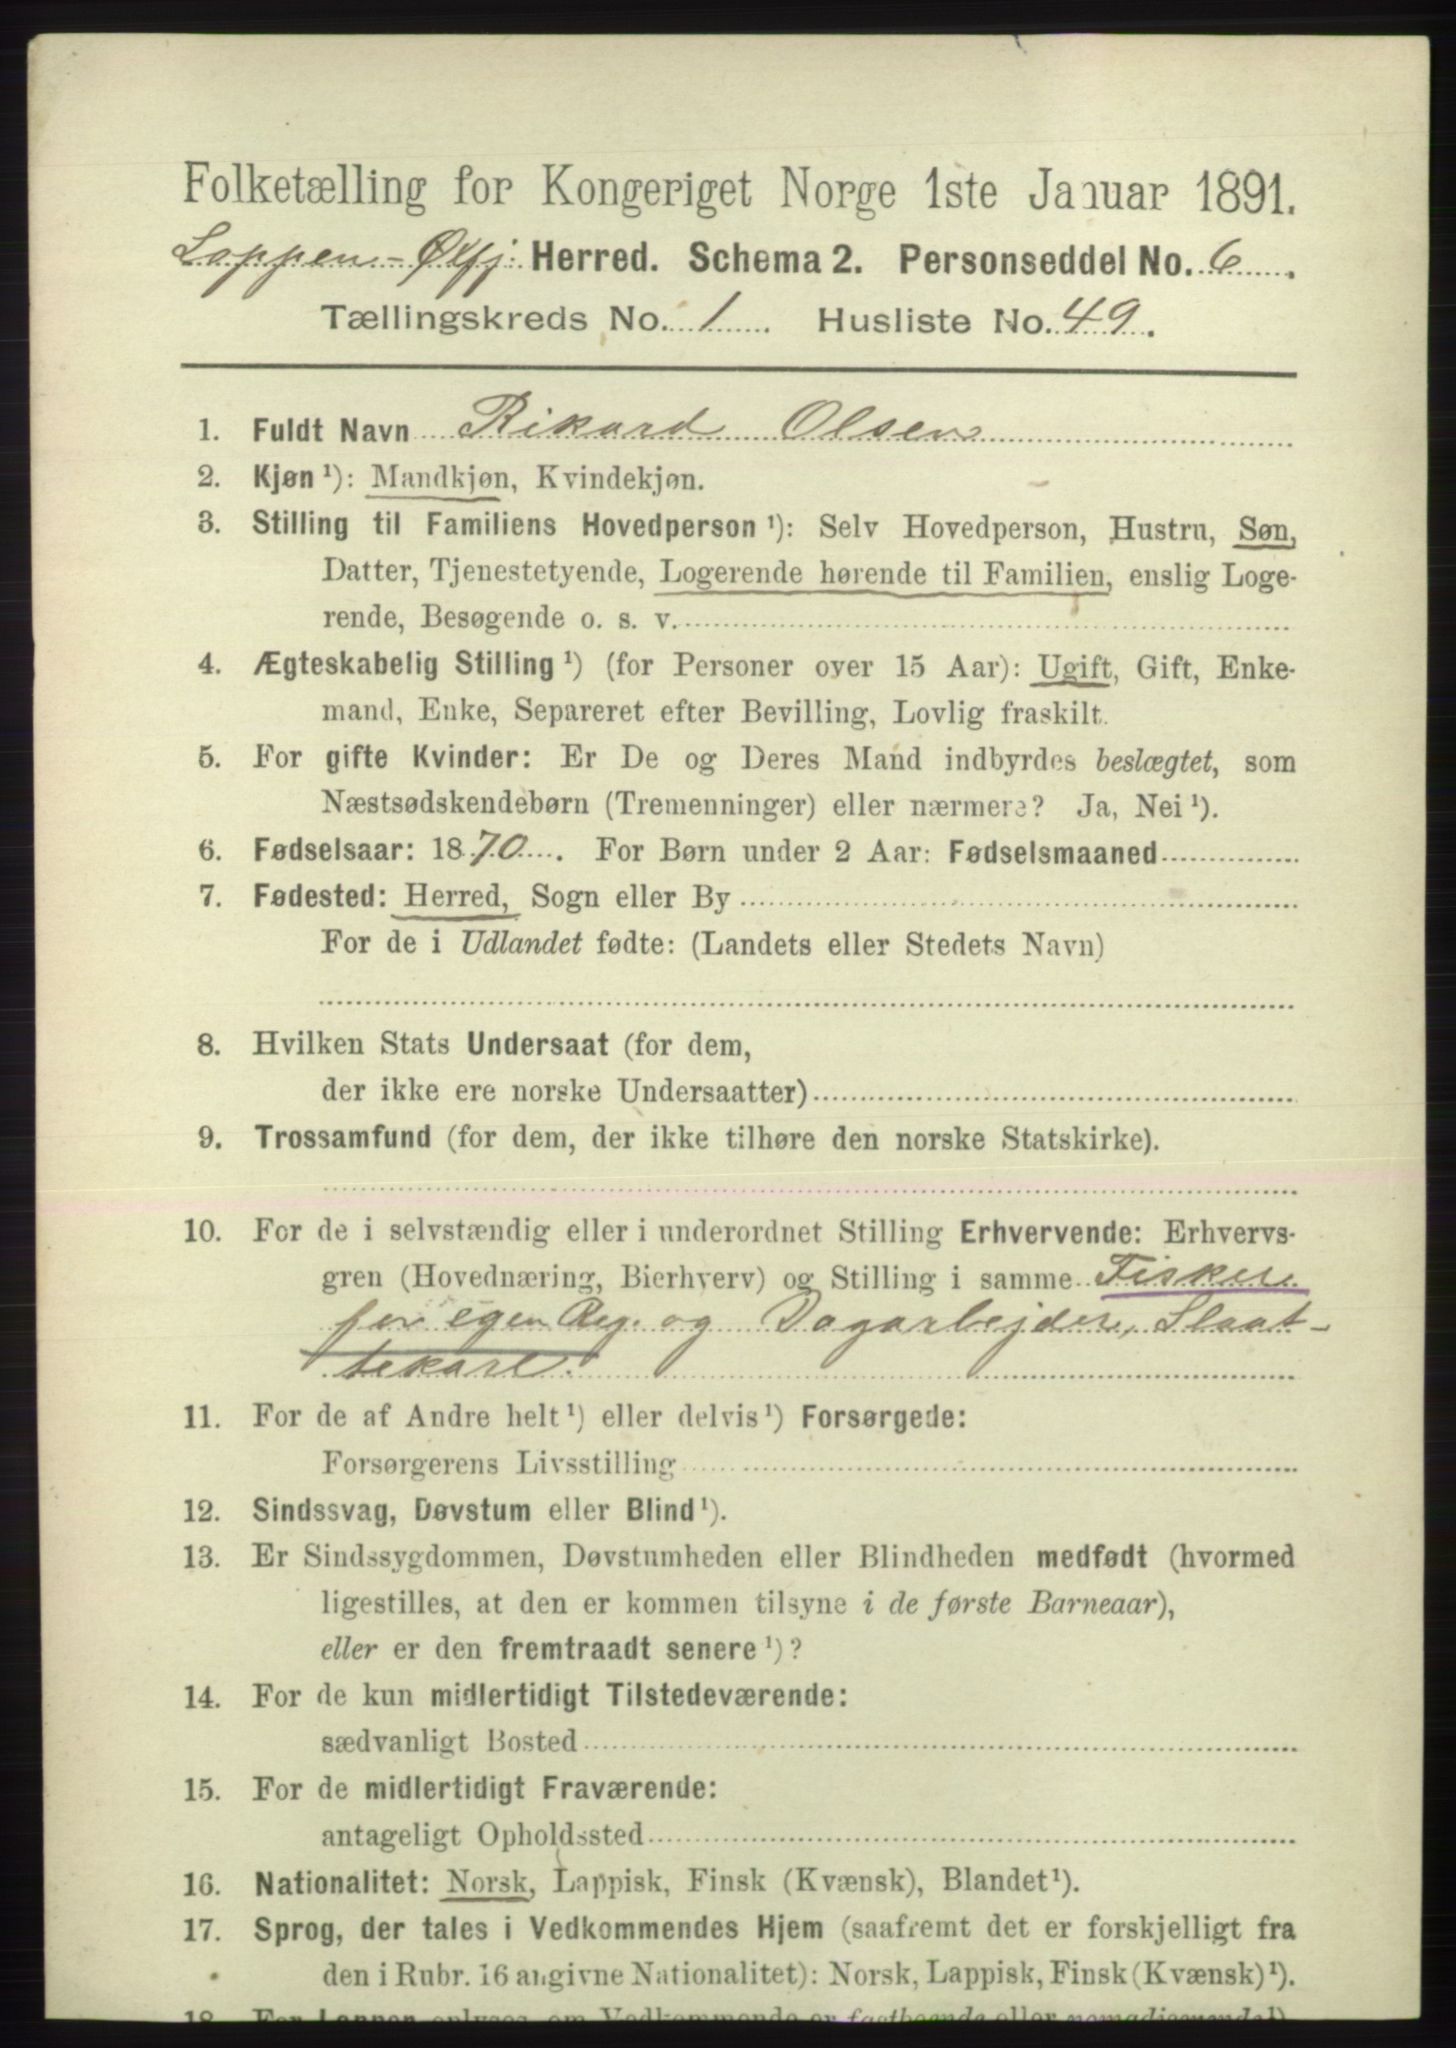 Folketælling for Kongeriget Norge 1ste Januar 1891.
Loppen-Øxfj. Herred. Schema 2. Personseddel No. 6.
Tællingskreds No. 1. Husliste No. 49.
1. Fuldt Navn Rikard Olsen
2. Kjøn ¹): Mandkjøn, Kvindekjøn.
3. Stilling til Familiens Hovedperson ¹): Selv Hovedperson, Hustru, Søn,
Datter, Tjenestetyende, Logerende hørende til Familien, enslig Loge-
rende, Besøgende o. s. v.
4. Ægteskabelig Stilling ¹) (for Personer over 15 Aar): Ugift, Gift, Enke-
mand, Enke, Separeret efter Bevilling, Lovlig fraskilt.
5. For gifte Kvinder: Er De og Deres Mand indbyrdes beslægtet, som
Næstsødskendebørn (Tremenninger) eller nærmere? Ja, Nei ¹).
6. Fødselsaar: 1870. For Børn under 2 Aar: Fødselsmaaned
7. Fødested: Herred, Sogn eller By
For de i Udlandet fødte: (Landets eller Stedets Navn)
8. Hvilken Stats Undersaat (for dem,
der ikke ere norske Undersaatter)
9. Trossamfund (for dem, der ikke tilhøre den norske Statskirke).
10. For de i selvstændig eller i underordnet Stilling Erhvervende: Erhvervs-
gren (Hovednæring, Bierhverv) og Stilling i samme Fisker
for egen Reg. og Dagarbejder, Slaat-
tekarl.
11. For de af Andre helt ¹) eller delvis ¹) Forsørgede:
Forsørgerens Livsstilling
12. Sindssvag, Døvstum eller Blind ¹).
13. Er Sindssygdommen, Døvstumheden eller Blindheden medfødt (hvormed
ligestilles, at den er kommen tilsyne i de første Barneaar),
eller er den fremtraadt senere ¹)?
14. For de kun midlertidigt Tilstedeværende:
sædvanligt Bosted
15. For de midlertidigt Fraværende:
antageligt Opholdssted
16. Nationalitet: Norsk, Lappisk, Finsk (Kvænsk), Blandet ¹).
17. Sprog, der tales i Vedkommendes Hjem (saafremt det er forskjelligt fra
den i Rubr. 16 angivne Nationalitet): Norsk, Lappisk, Finsk (Kvænsk) ¹).
18. For Lapper oplyses, om Vedkommende er fastboende eller nomadiserende ¹).